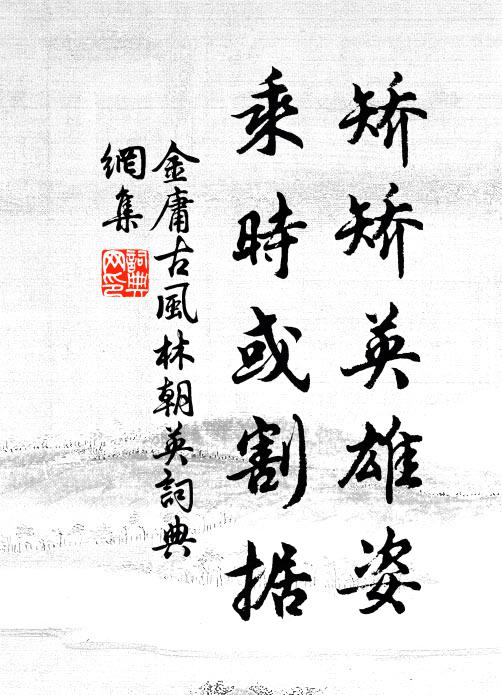 矫矫英雄姿
乘時或割据
金庸古風林朝英詞典
網集
詞典
网印